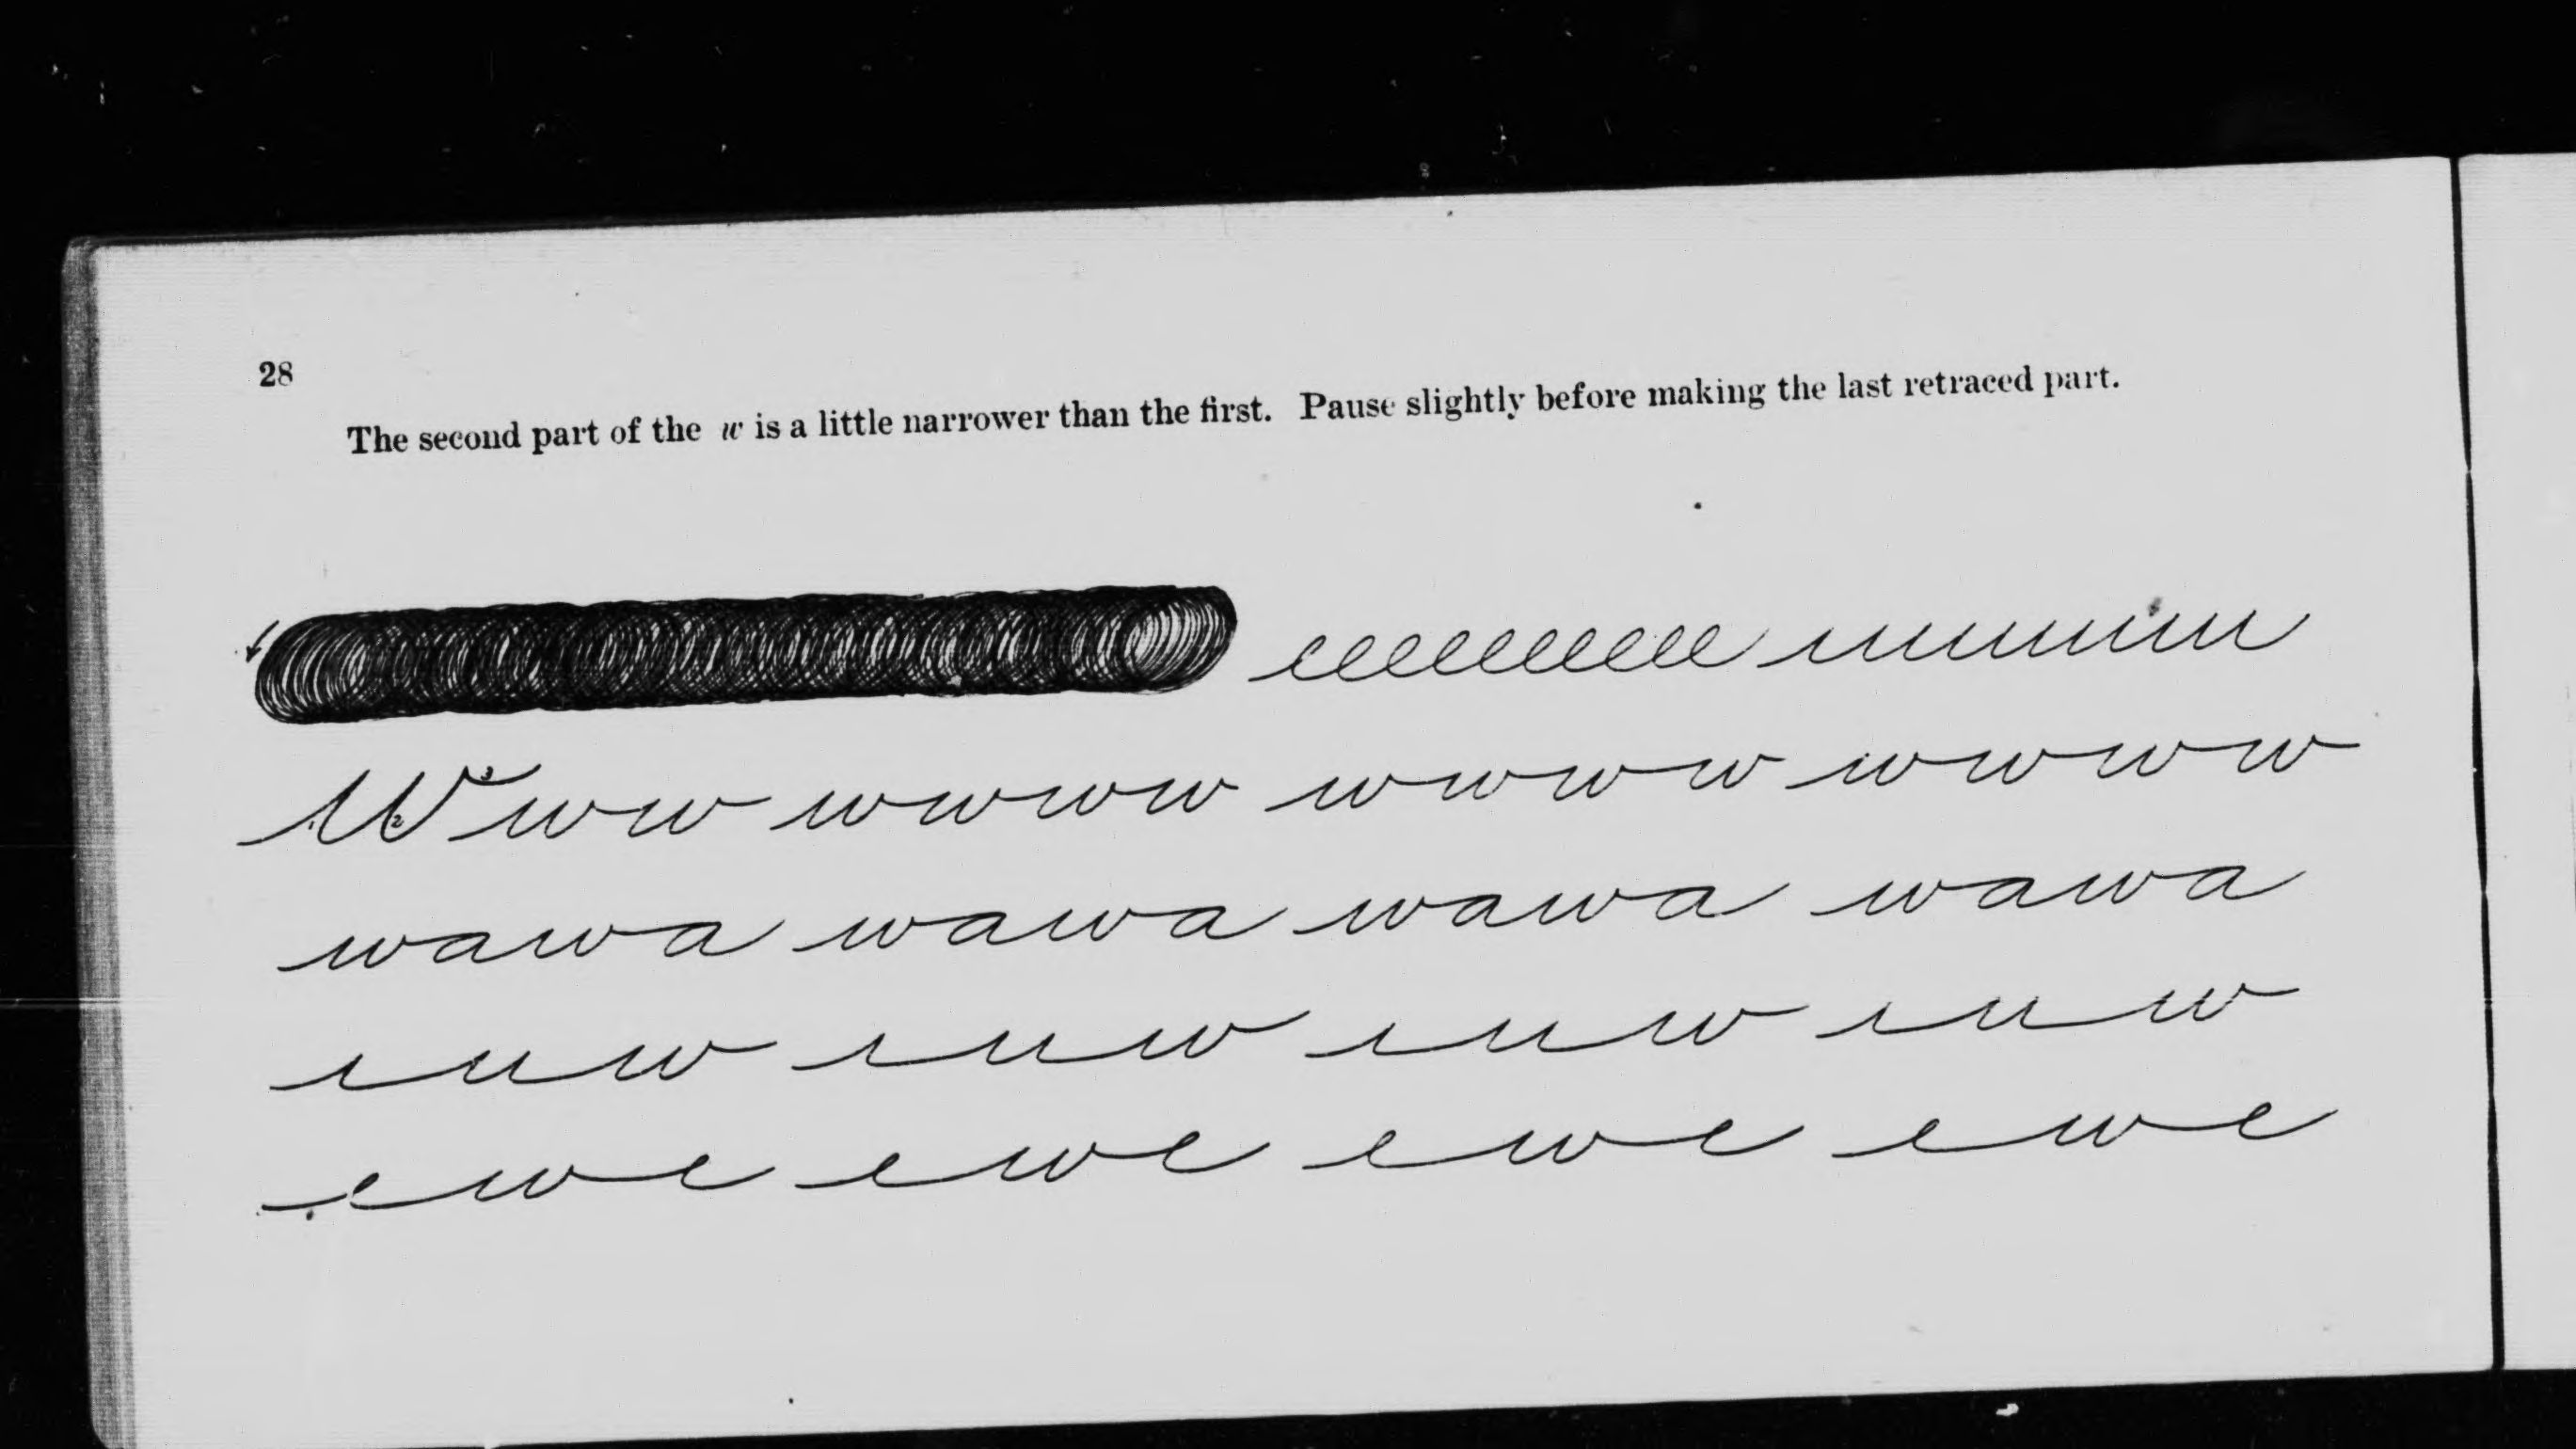 28
The second part of the w is a little narrower than the first. Pause slightly before making the last retraced part.
eeeeeeeeee uuuuuu
1 2 3
w w w wwww wwww wwww
wawa wawa wawa wawa
ıuw ıuw ıuw ıuw
ewe ewe ewe ewe